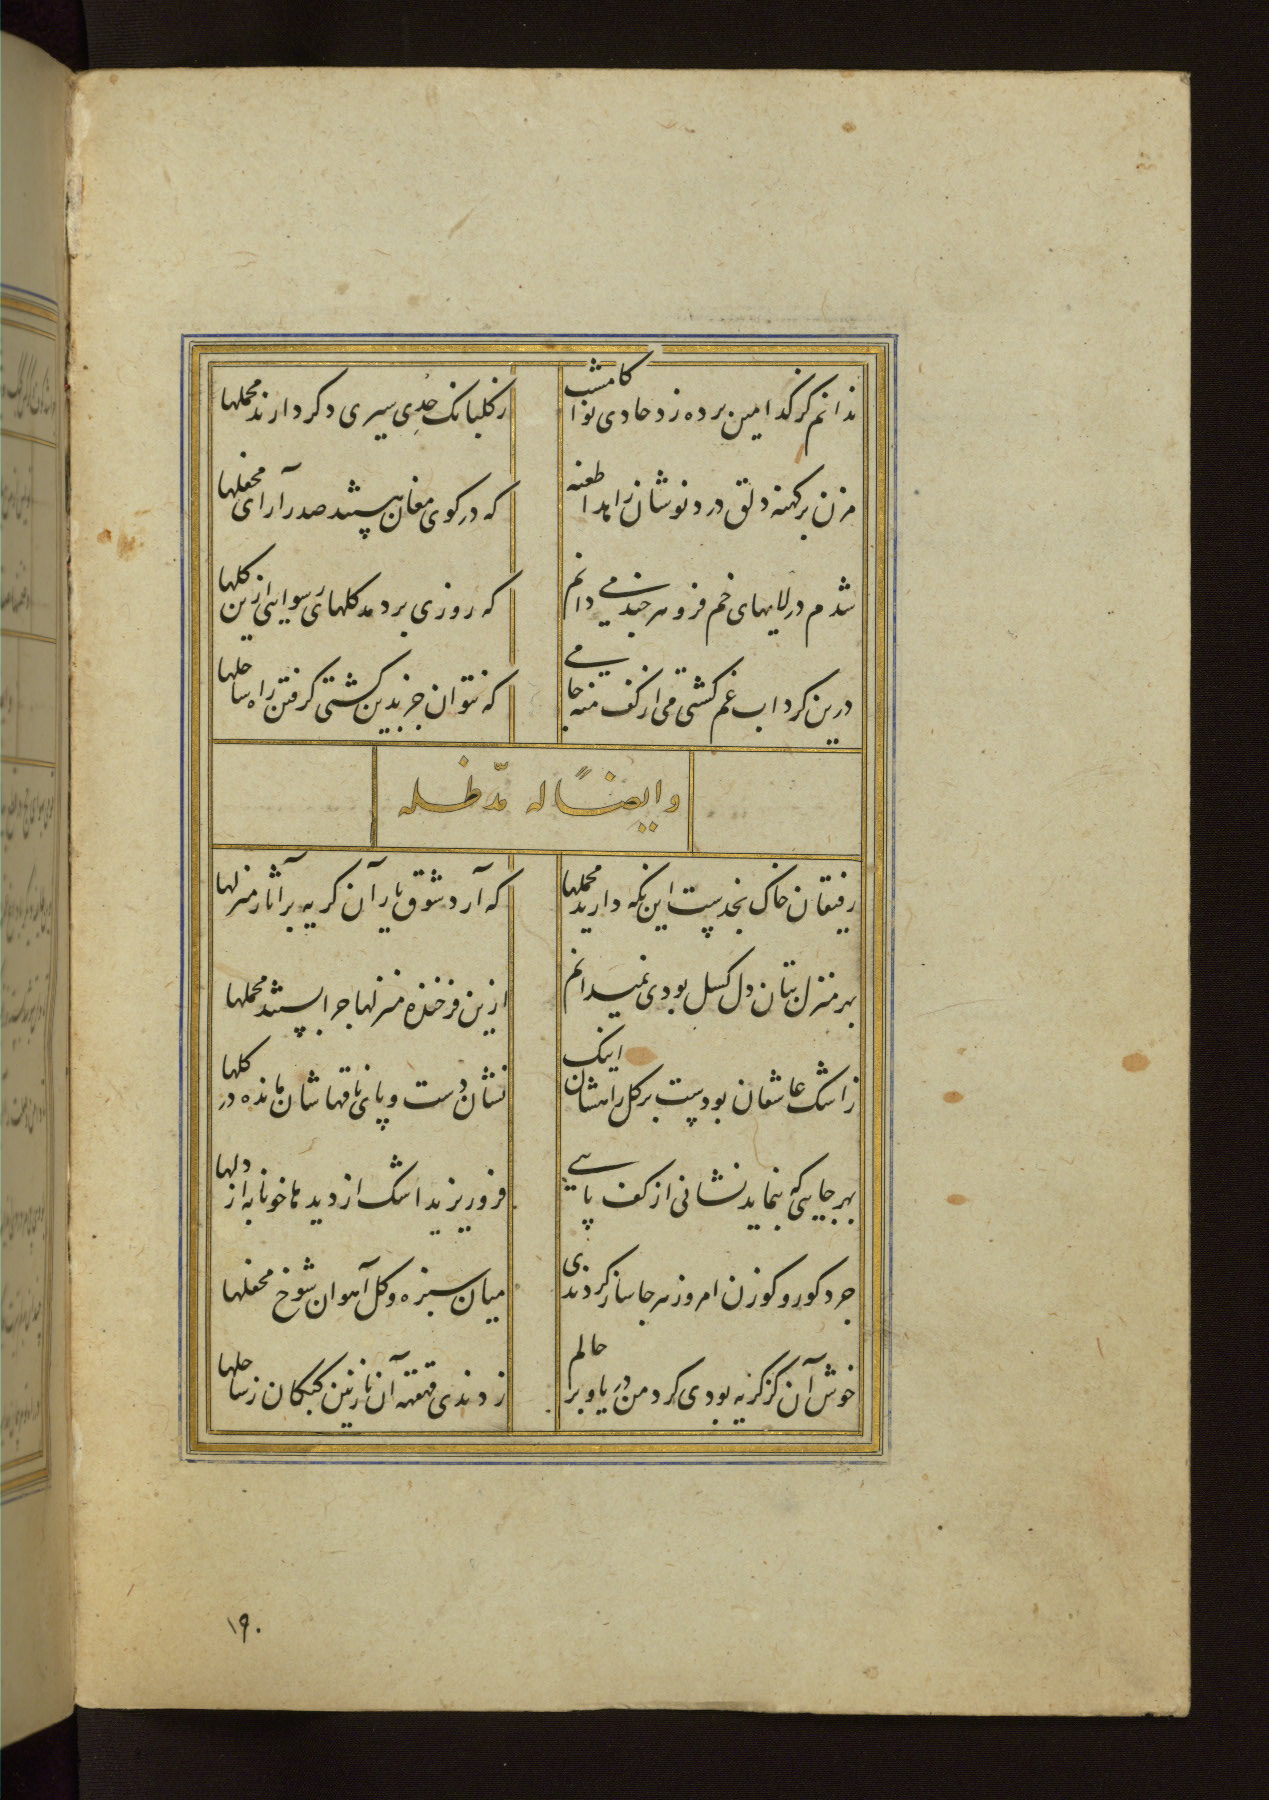 ندانم کز کدامین پرده زد حادی نوا کامشب
ز کلبانک حدی سیری دکر دارند محملها
مزن بر کهنه دلق درد نوشان زاهدا طعنه
که در کوی مغان هستند صدر آرای محفلها
شدم در لایهای خم فرو هر چند می دانم
که روزی بر دمد کلهای رسوایی ازین کلها
درین کرداب غم کشتی می از کف منه جامی
که نتوان جز بدین کشتی کرفتن راه ساحلها
وایضاً له مدّ ظله
رفیقان خاک نجدست اینکه دارید محملها
که آرد شوق یار آن کریه بر آثار منزلها
بهر منزل بتان دل کسل بودی نمیدانم
ازین فرخنده منزلها چرا بستند محملها
ز اشک عاشقان بودست بر کل راهشان اینک
نشان دست و پای ناقهاشان مانده در کلها
بهر جایی که بنماید نشانی از کف پایی
فرو ریزید اشک از دیدها خونابه از دلها
چرد کور و کوزن امروز هر جا ساز کردندی
میان سبزه و کل آهوان شوخ محفلها
خوش آن کز کریه بودی کرد من دریا و بر حالم
زدندی قهقهه آن نازنین کبکان ز ساحلها
۱۹۰